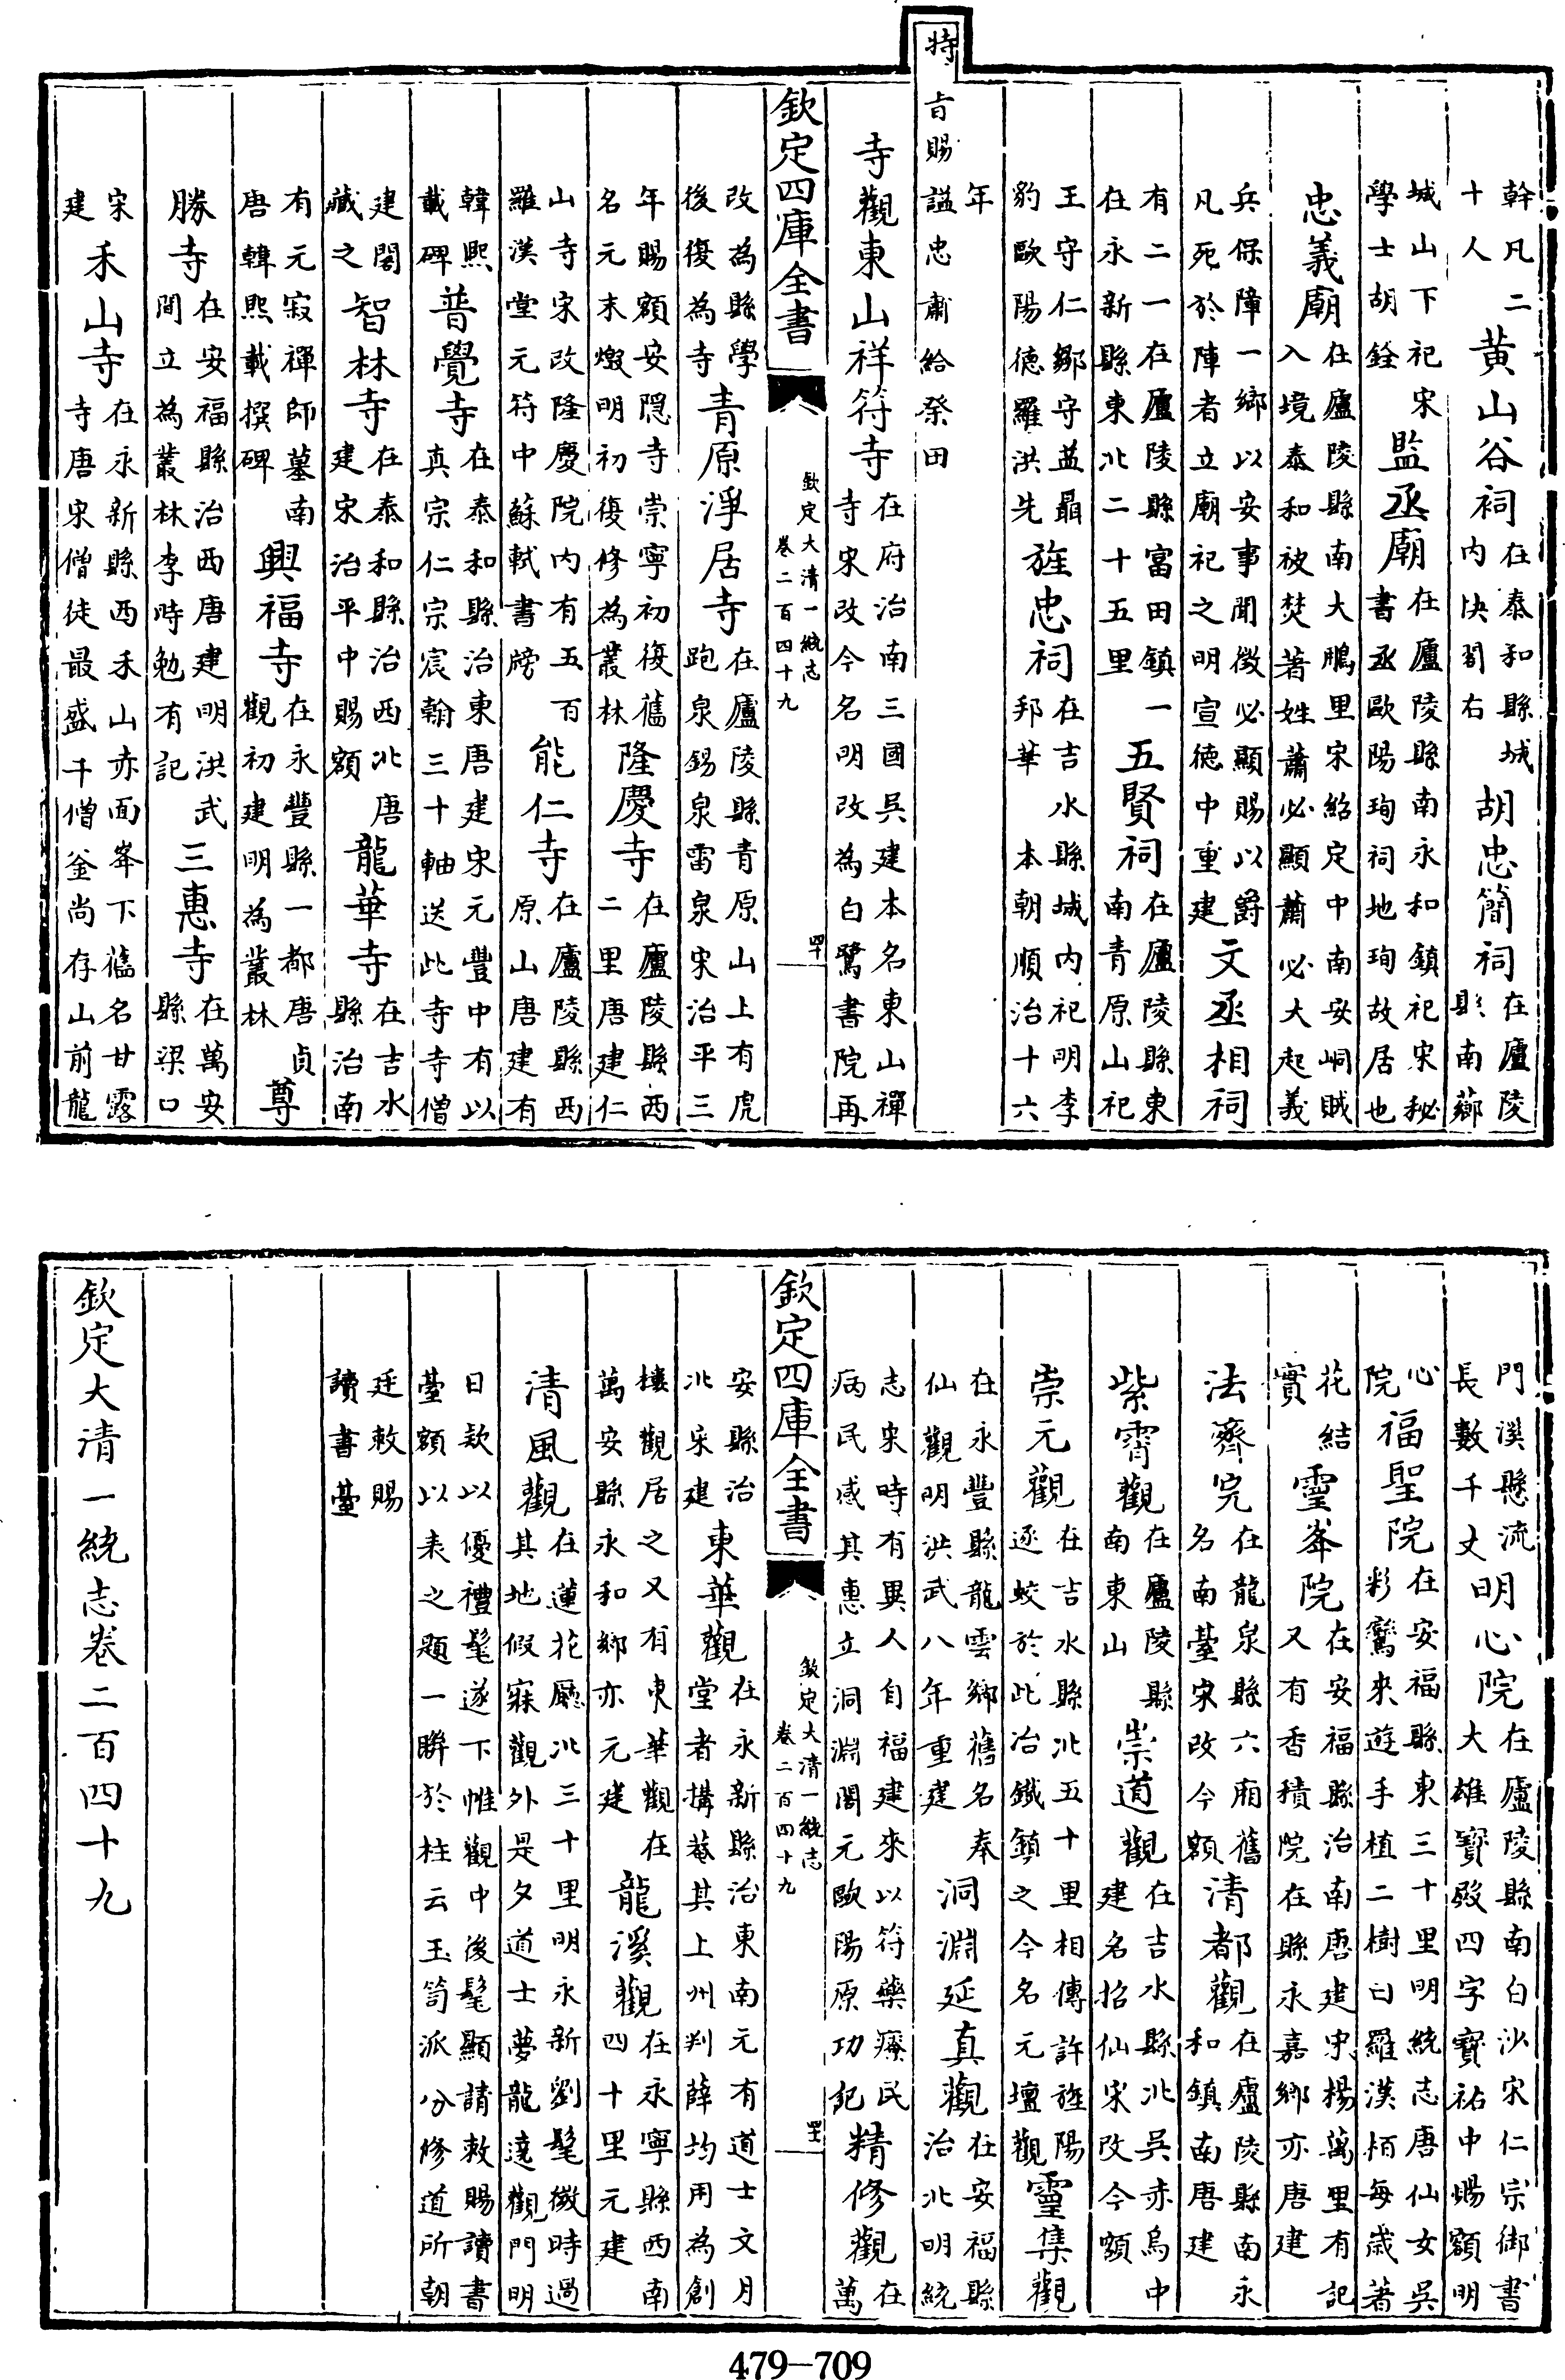 幹凡二十人黄山谷祠在泰和縣城内快閣右胡忠簡祠在廬陵縣南薌
城山下祀宋學士胡銓監丞廟在廬陵縣南永和鎮祀宋秘書丞歐陽珣祠地珣故居也
忠義廟在廬陵縣南大鵬里宋紹定中南安峒賊入境泰和被焚著姓蕭必顯蕭必大起義
兵保障一鄉以安事聞徴必顯賜以爵凡死於陣者立廟祀之明宣徳中重建文丞相祠
有二一在廬陵縣富田鎮一在永新縣東北二十五里五賢祠在廬陵縣東南青原山祀
王守仁鄒守益聶豹歐陽徳羅洪先旌忠祠在吉水縣城内祀明李邦華本朝順治十六
年特㫖賜諡忠肅給祭田
寺觀東山祥符寺在府治南三國呉建本名東山禪寺宋改今名明改為白鷺書院再
欽定四庫全書 欽定大清一統志 卷二百四十九 四十
改為縣學後復為寺青原淨居寺在廬陵縣青原山上有虎跑泉錫泉雷泉宋治平三
年賜額安隠寺崇寧初復舊名元末燬明初復修為叢林隆慶寺在廬陵縣西二里唐建仁
山寺宋改隆慶院内有五百羅漢堂元符中蘇軾書牓能仁寺在廬陵縣西原山唐建有
韓熙載碑普覺寺在泰和縣治東唐建宋元豐中有以真宗仁宗宸翰三十軸送此寺寺僧
建閣藏之智林寺在泰和縣治西北唐建宋治平中賜額龍華寺在吉水縣治南
有元寂禪師墓南唐韓熙載撰碑興福寺在永豐縣一都唐貞觀初建明為叢林尊
勝寺在安福縣治西唐建明洪武間立為叢林李時勉有記三惠寺在萬安縣梁口
宋建禾山寺在永新縣西禾山赤面峯下舊名甘露寺唐宋僧徒最盛千僧釜尚存山前龍
門溪懸流長數千丈明心院在廬陵縣南白沙宋仁宗御書大雄寶殿四字寶祐中賜額明
心院福聖院在安福縣東三十里明統志唐仙女呉彩鸞來遊手植二樹曰羅漢栢每歳著
花結實靈峯院在安福縣治南唐建宋楊萬里有記又有香積院在縣永嘉鄉亦唐建
法齊完在龍泉縣六廂舊名南臺宋改今額清都觀在廬陵縣南永和鎮南唐建
紫霄觀在廬陵縣南東山崇道觀在吉水縣北呉赤烏中建名招仙宋改今額
崇元觀在吉水縣北五十里相傳許旌陽逐蛟於此冶鐵鎮之今名元壇觀靈集觀
在永豐縣龍雲鄉舊名奉仙觀明洪武八年重建洞淵延真觀在安福縣治北明統
志宋時有異人自福建來以符藥療民病民感其惠立洞淵閣元歐陽原功記精修觀在萬
欽定四庫全書 欽定大清一統志 卷二百四十九 四十一
安縣治北宋建東華觀在永新縣治東南元有道士文月堂者搆菴其上州判薛均用為創
樓觀居之又有東華觀在萬安縣永和鄉亦元建龍溪觀在永寧縣西南四十里元建
清風觀在蓮花廳北三十里明永新劉髦微時過其地假寐觀外是夕道士夢龍遶觀門明
日欵以優禮髦遂下帷觀中後髦顯請敕賜讀書臺額以表之題一聯於柱云玉笥派分修道所朝
廷敕賜讀書臺
欽定大清一統志卷二百四十九
479—709